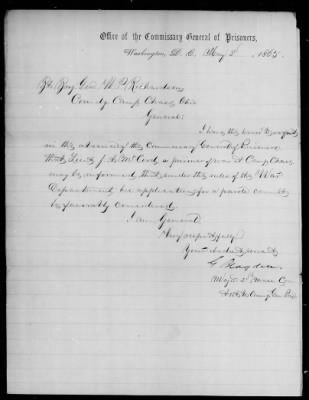 Office of the Commissary General of Prisoners,
Washington, D. C. May 2d 1865.
Bt. Brig Gen W. P. Richardson
Comdg Camp Chase, Ohio
General:
I have the honor to request
in the absence of the Commissary General of Prisoners
that Lieut J. A. McCord, a prisoner of war at Camp Chase
may be informed that under the rules of the War
Department his application for a parole cannot
be favorably considered.
I am General
Very respectfully
Your obedt servant
G. Blagden
Maj 2d Mass Cav